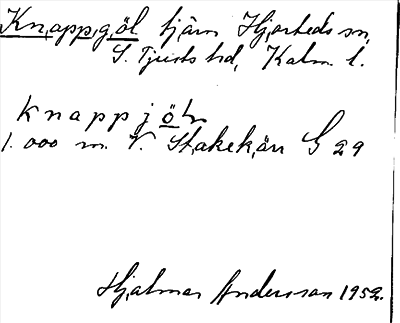 Knappgöl tjärn Hjorteds sn,
S. Tjusts hd, Kalm. l.
knappjöln
1.000 m. V. Stakekärr G 29
Hjalmar Andersson 1952.